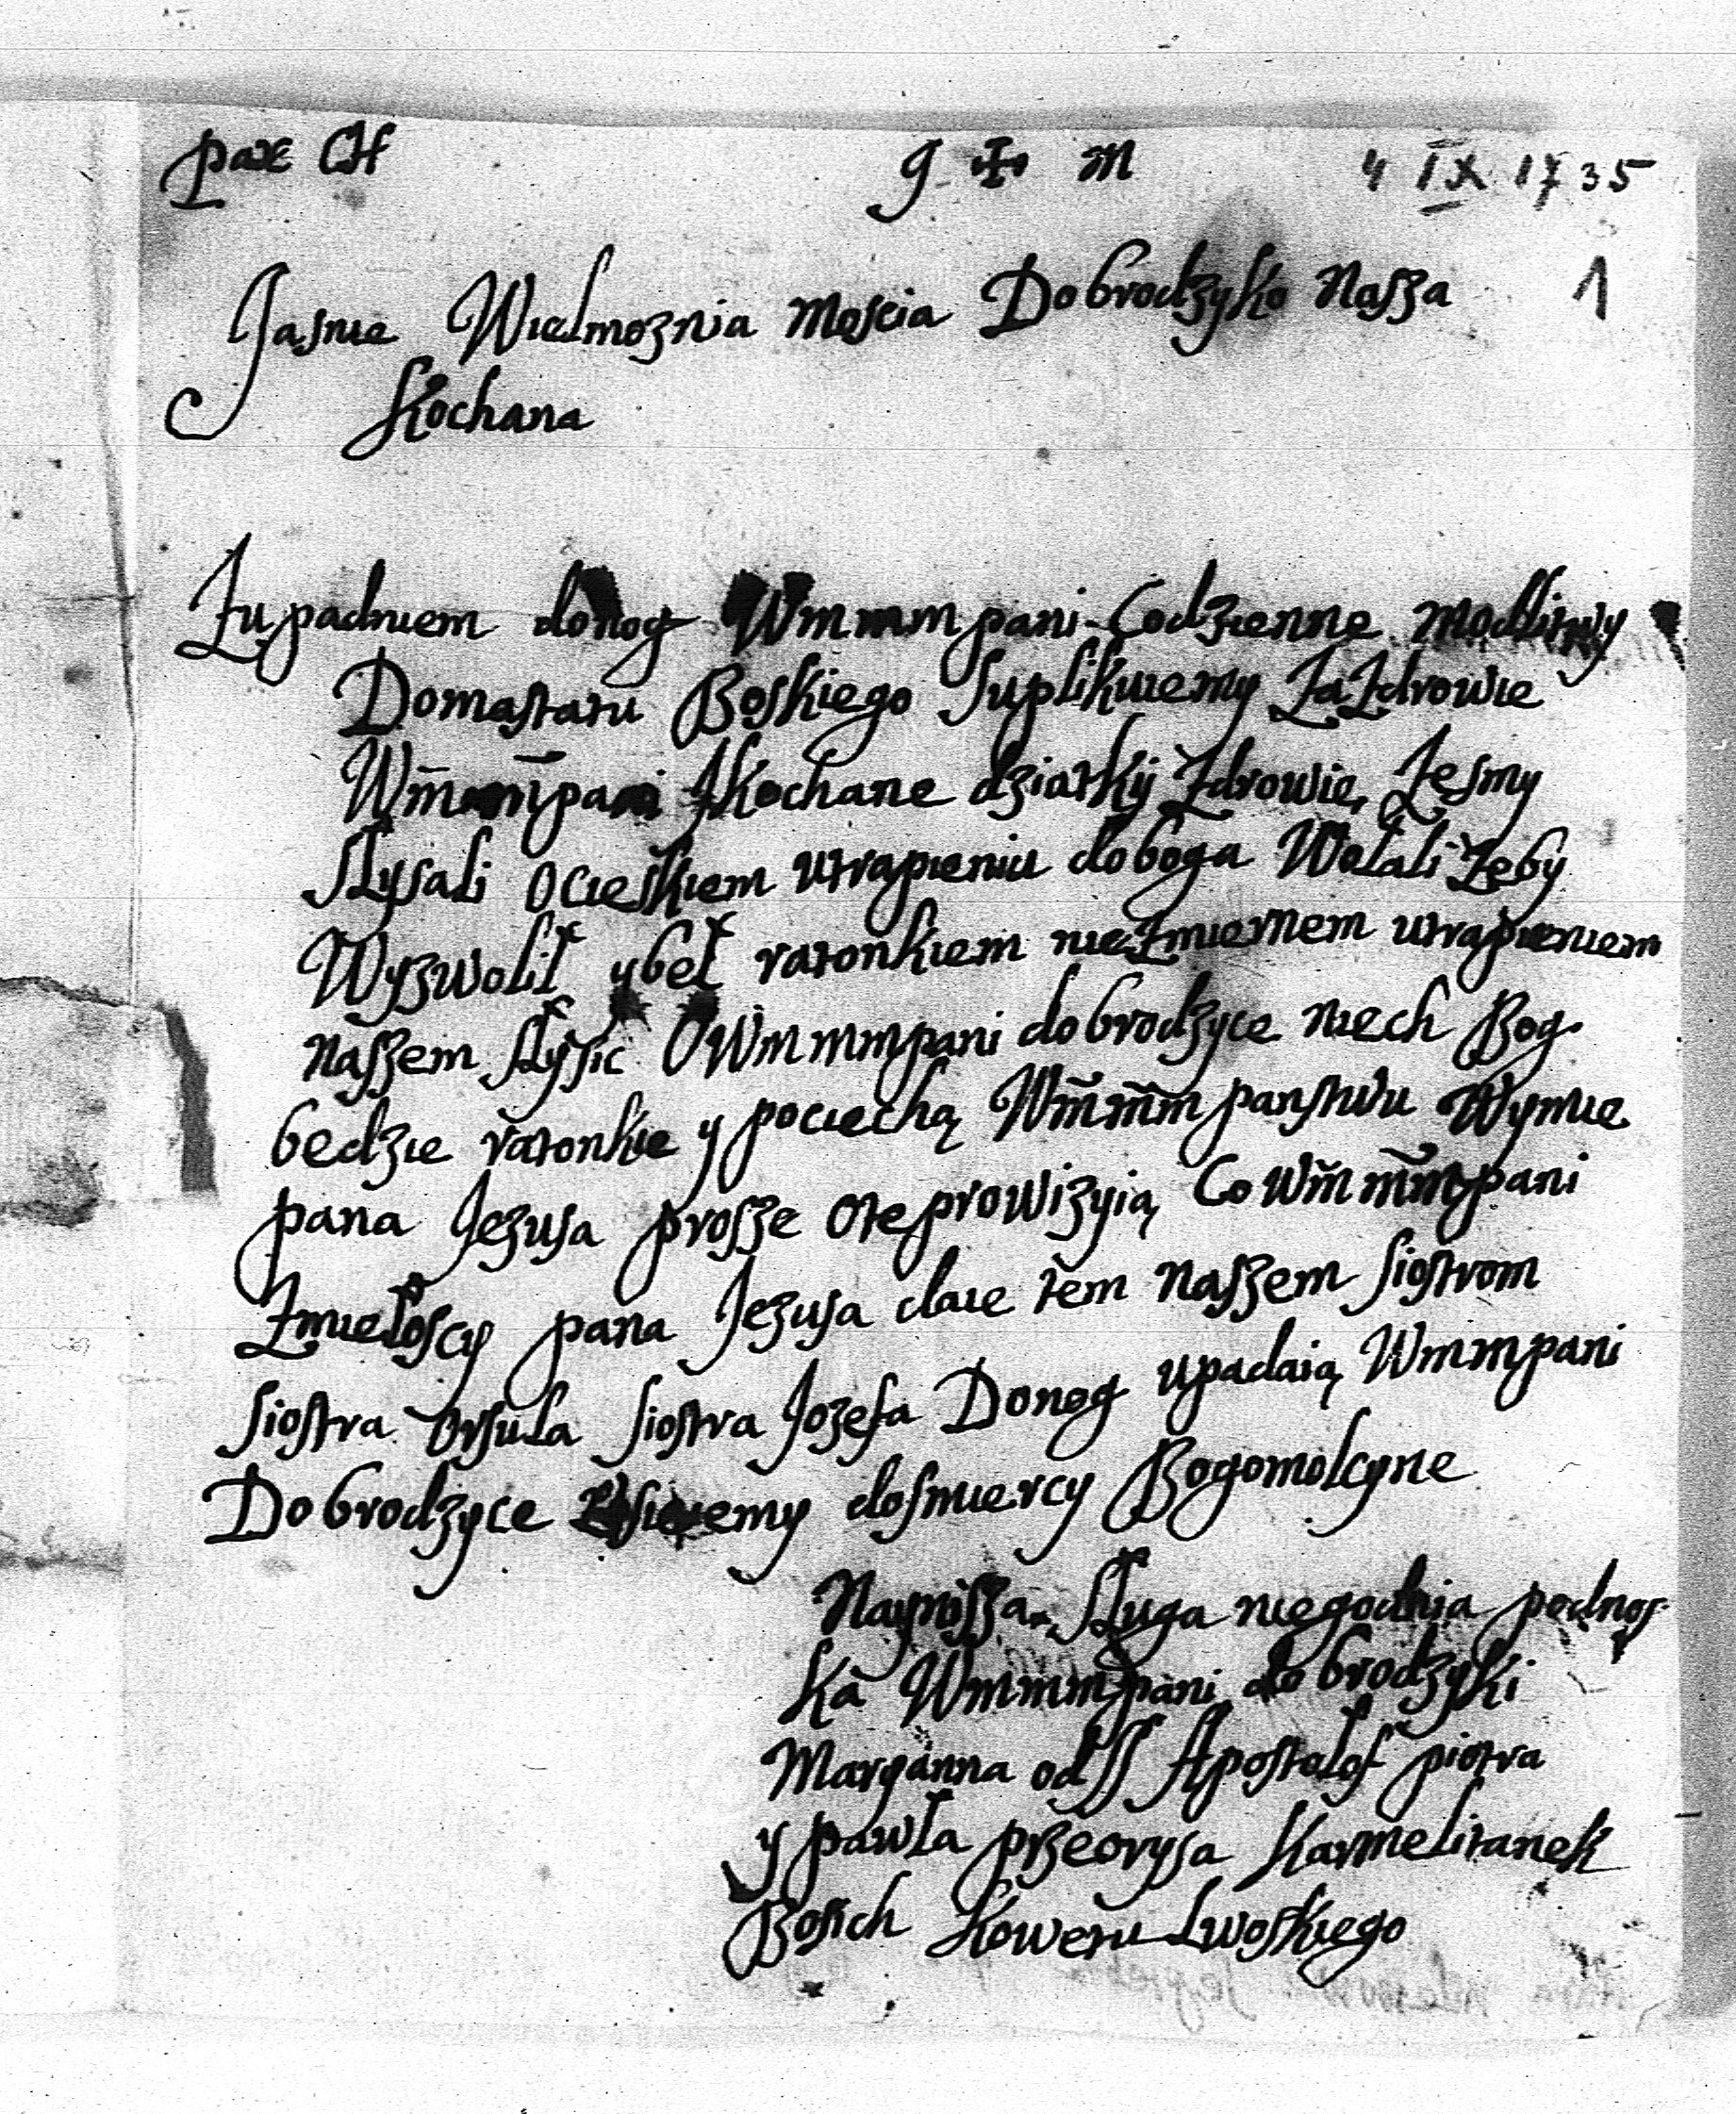 pax CH g ✠ m 4 IX 1735
Jasnie Wielmoznia moscia Dobrodzyko Nasza 1
Kochana
Zupadniem donog Wmmm pani Codzienne modlitwy
Domastatu Boskiego Suplikuiemy Za Zdrowie
Wmmm pani Ykochane dziatkij Zdrowie, Zesmy
Słysali Ocieskiem utrapieniu doboga Wołali Zeby
Wyzwolił ybeł ratonkiem nieZmiernem utrapieniem
naszem słysic O Wmmmpani dobrodzyce niech Bog
bedzie ratonkie y pociechą Wmmm panstwu Wymie
pana Jezusa prosze Ote prowizyią Co Wmmmpani
Zmiełoscy pana Jezusa daie tem naszem Siostrom
Siostra Orsula Siostra Jozefa Donog upadaią Wmmpani
Dobrodzyce dosmiercy Bogomolcyne
Naynisza Sługa niegodnia podnos
ka Wmmmpani dobrodzyki
Maryanna od SS Apostołof piotra
y pawła przeorysa Karmelitanek
Bosich Kowetu Lwoskiego